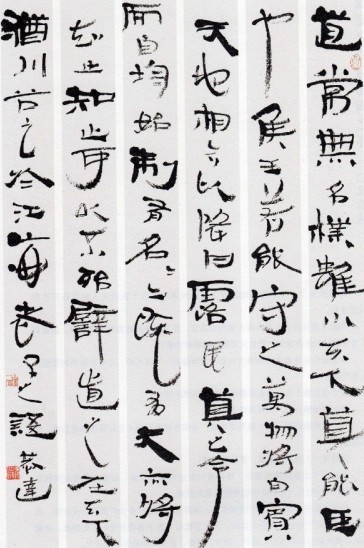 道常無名樸雖小天下莫能臣
也侯王若能守之萬物將自賓
天地相合以降甘露民莫之令
而自均始制有名々亦既有夫亦將
知止知止可以不殆譬道之在天下
猶川谷之於江海老子之語恭達